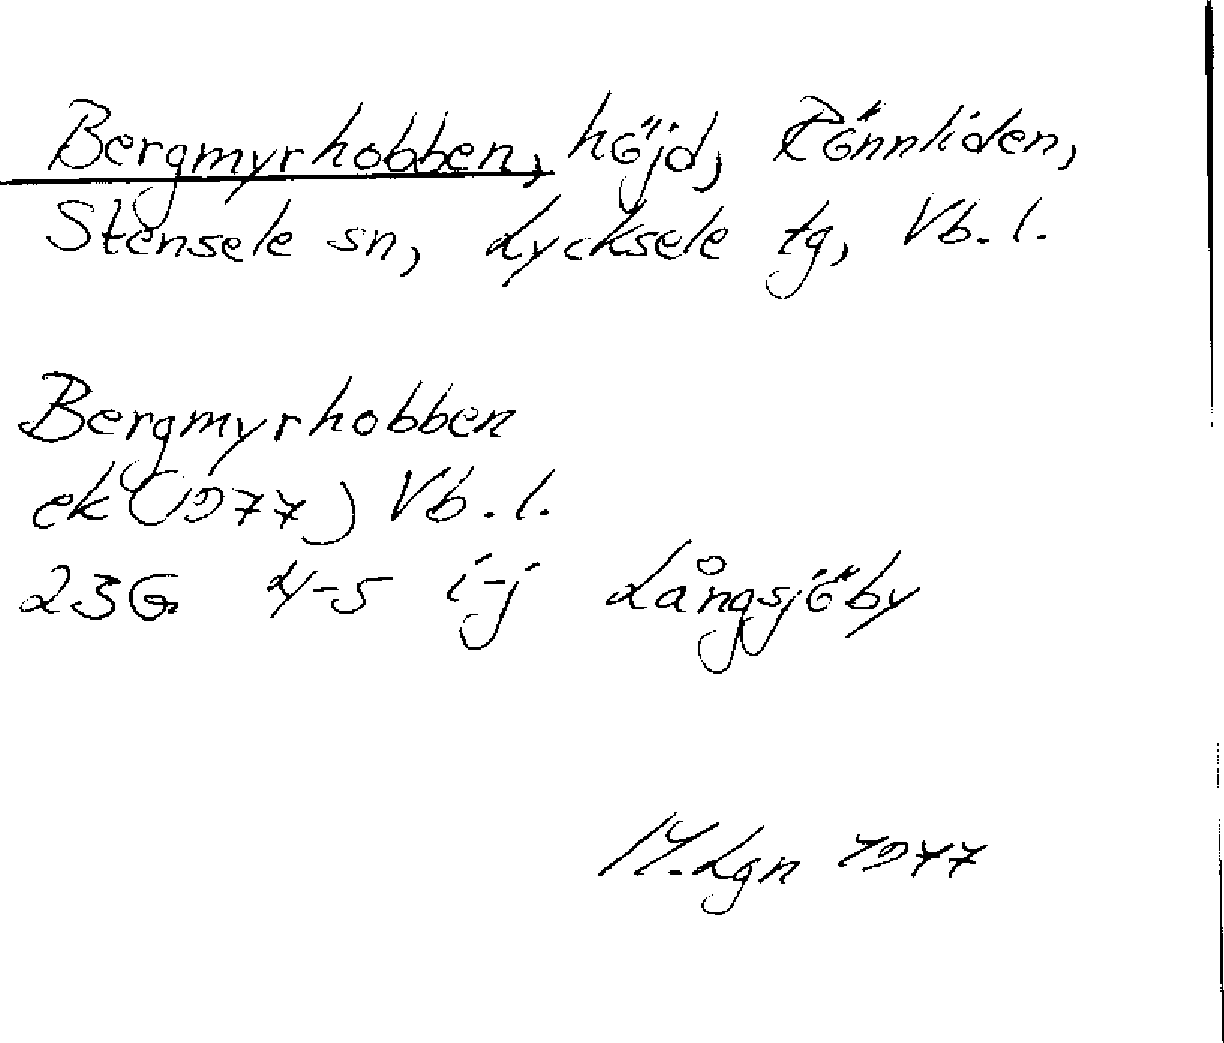 Bergmyrhobben, höjd, Rönnliden,
Stensele sn, Lycksele tg, Vb. l.
Bergmyrhobben
ek (1977) Vb. l.
23G 4-5 i-j Långsjöby
Lgn 1977